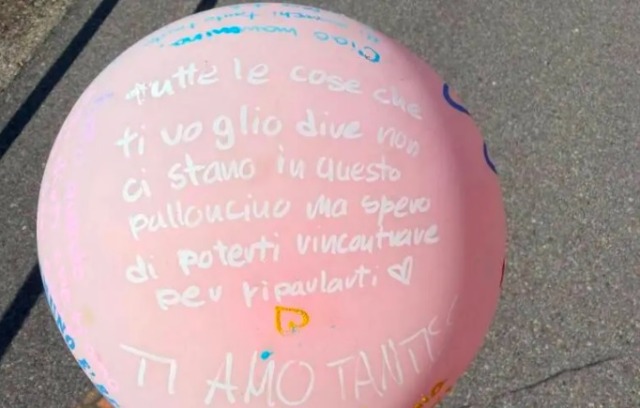 Ciao mammina
Tutte le cose che
ti voglio dire non
ci stano in questo
palloncino ma spero
di poterti rincontrare
per riparlarti ♡
TI AMO TANTIS